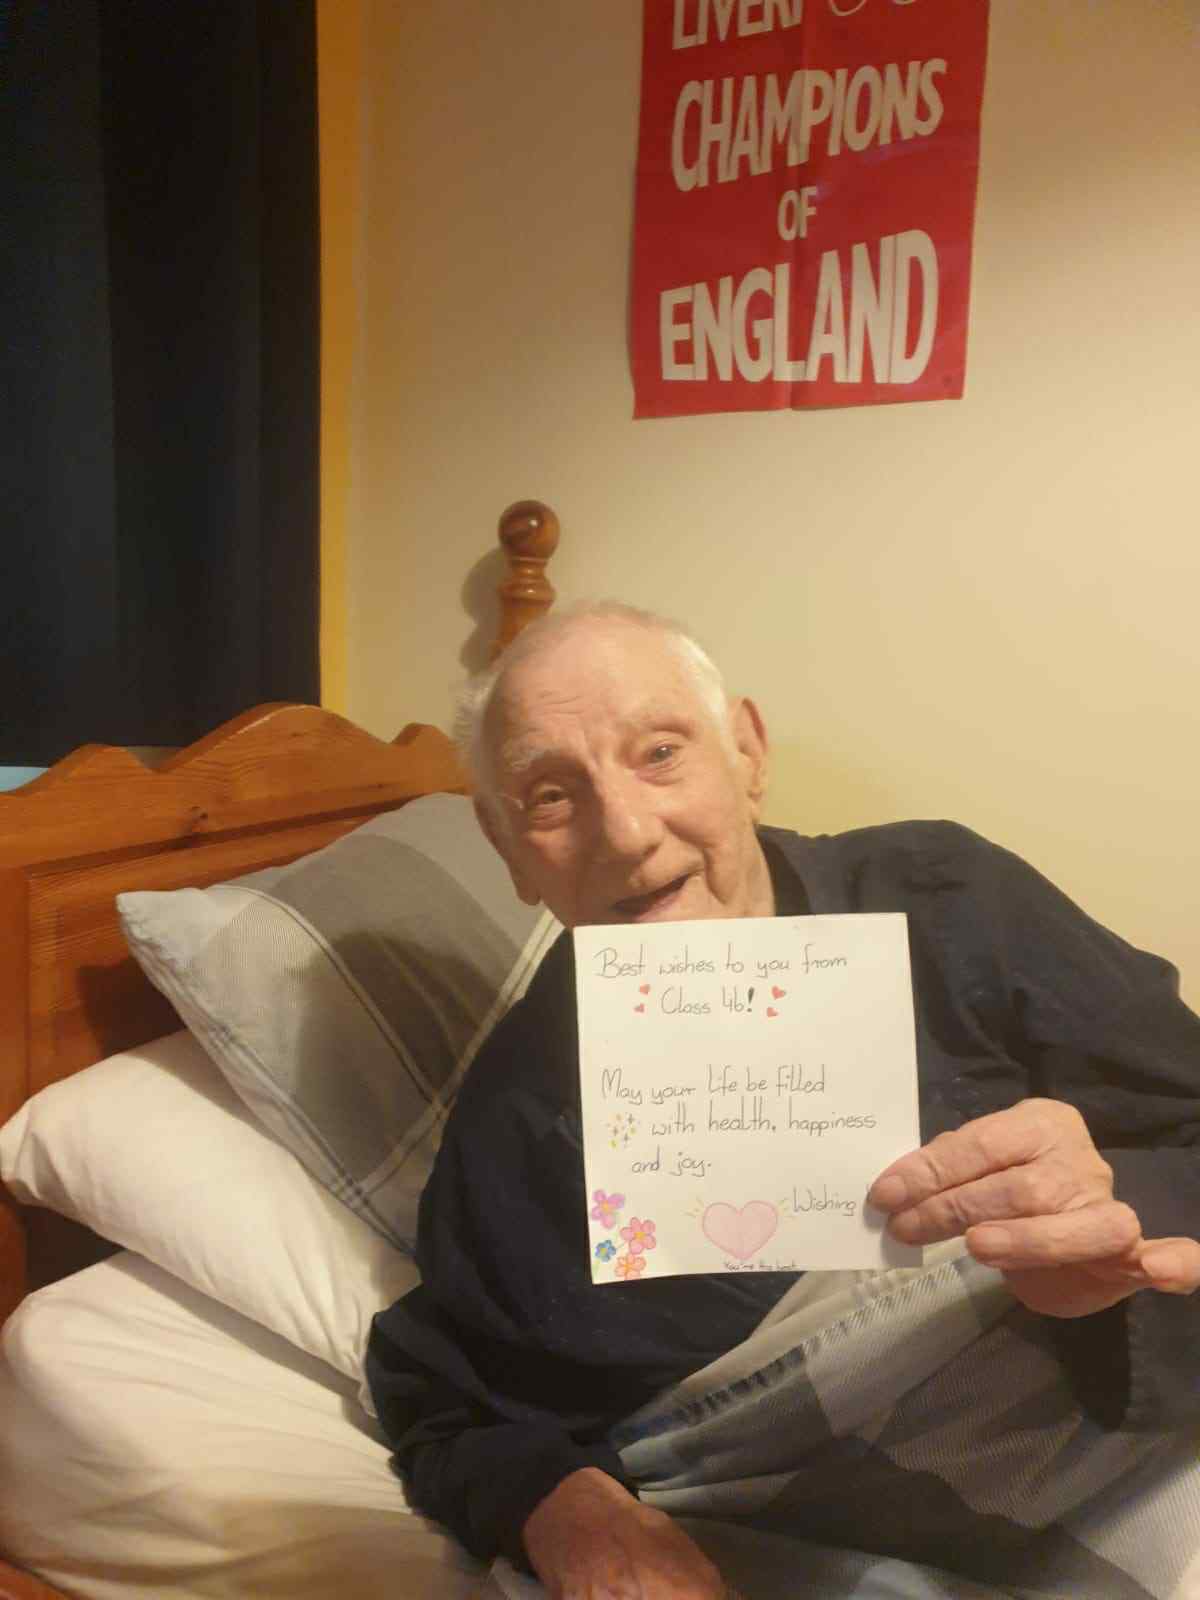 LIVERP
CHAMPIONS
OF
ENGLAND
Best wishes to you from
Class 4b!
May your life be filled
with health, happiness
and joy.
Wishing
You're the best